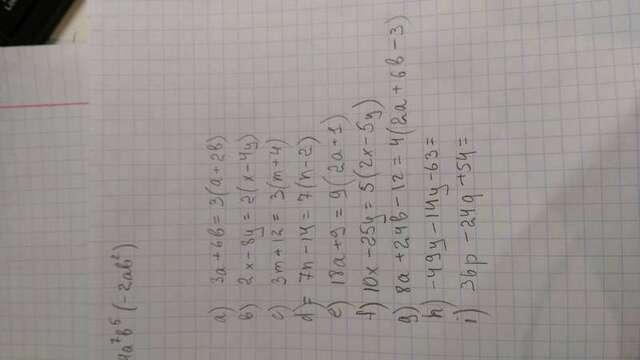 4a⁷b⁵(-2ab²)
a) 3a+6b=3(a+2b)
b) 2x-8y=2(x-4y)
c) 3m+12=3(m+4)
d) = 7n-14=7(n-2)
e) 18a+9=9(2a+1)
f) 10x-25y=5(2x-5y)
g) 8a+24b-12=4(2a+6b-3)
h) -49y-14y-63=
i) 36p-24q+54=